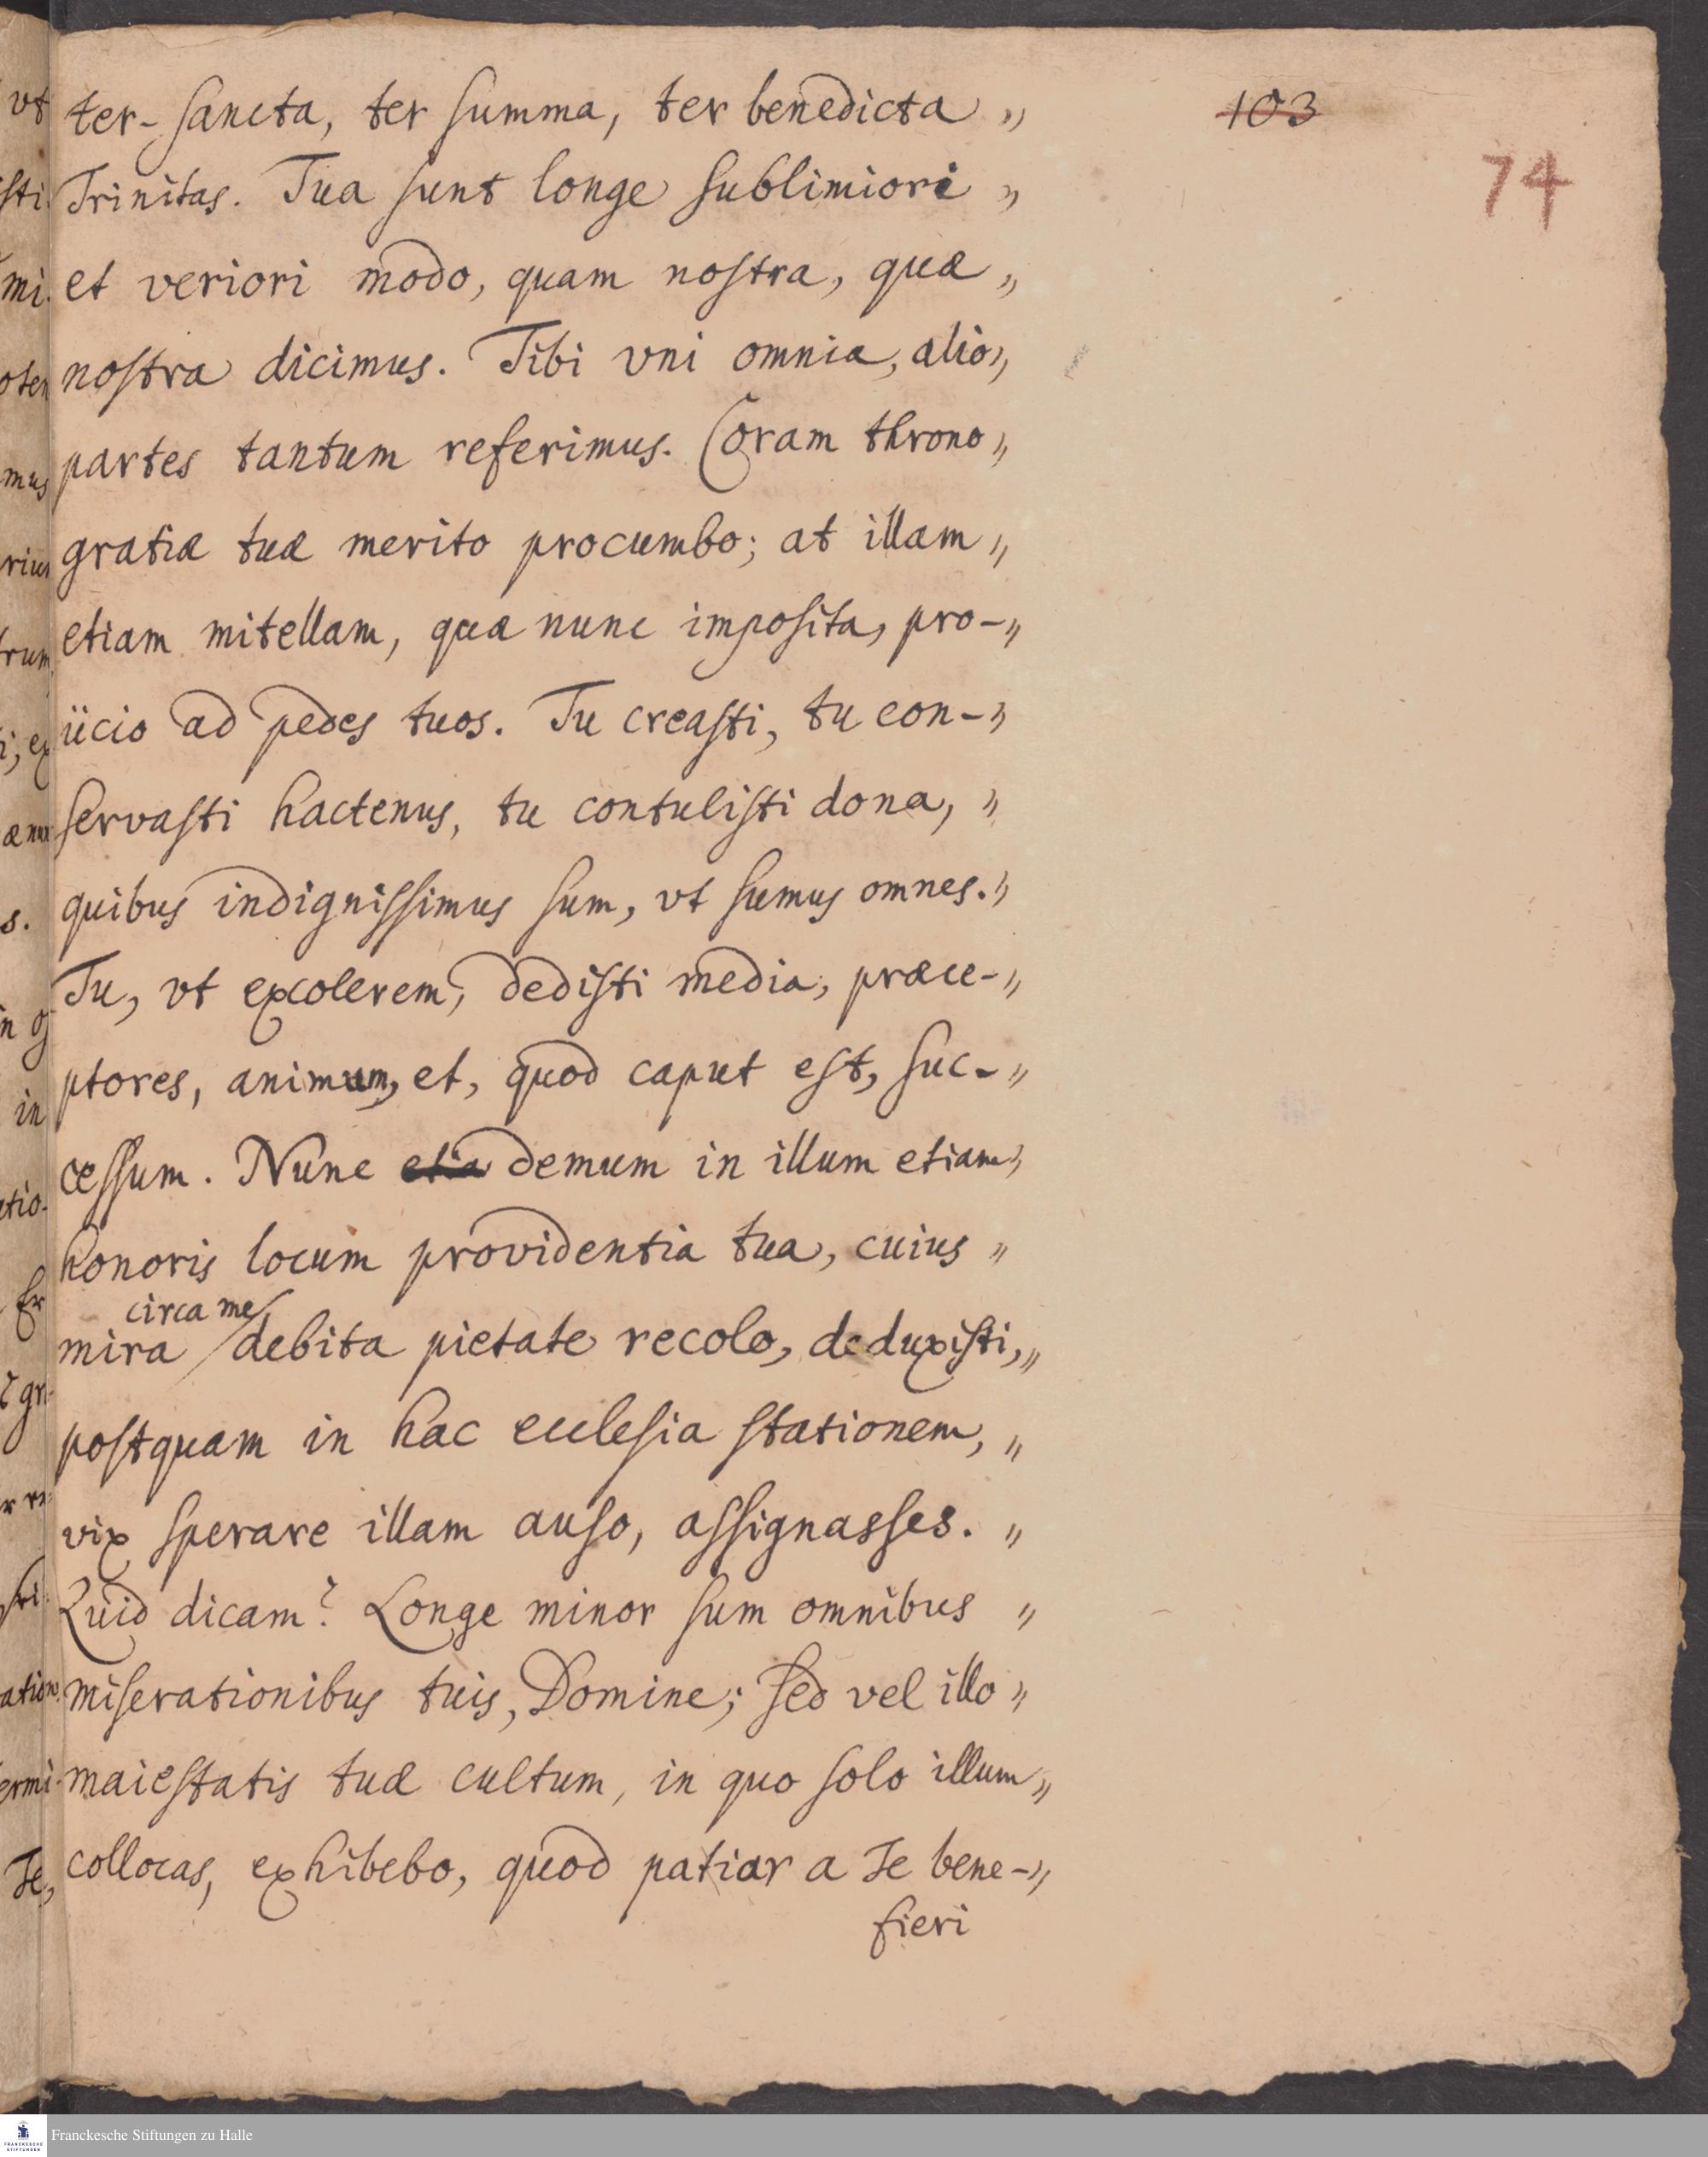 103
74
ter-sancta, ter summa, ter benedicta „
Trinitas. Tua sunt longe sublimiori „
et veriori modo, quam nostra, quæ „
nostra dicimus. Tibi vni omnia, alio „
partes tantum referimus. Coram throno „
gratiæ tuæ merito procumbo; at illam „
etiam mitellam, quæ nunc imposita, pro- „
iicio ad pedes tuos. Tu creasti, tu con- „
servasti hactenus, tu contulisti dona, „
quibus indignissimus sum, vt sumus omnes. „
Tu, vt excolerem, dedisti media, præce- „
ptores, animum, et, quod caput est, suc- „
cessum. Nunc etia demum in illum etiam „
honoris locum providentia tua, cuius „
circa me
mira debita pietate recolo, deduxisti, „
postquam in hac ecclesia stationem, „
vix sperare illam auso, assignasses. „
Quid dicam? Longe minor sum omnibus „
miserationibus tuis, Domine; sed vel illo „
maiestatis tuæ cultum, in quo solo illum „
collocas, exhibebo, quod patiar a Te bene- „
fieri
Franckesche Stiftungen zu Halle